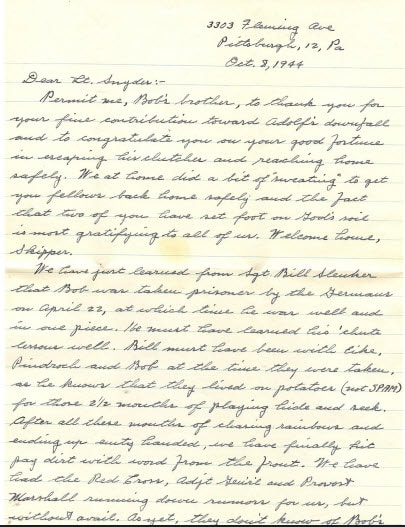 3303 Fleming Ave
Pittsburgh, 12, Pa
Oct. 8, 1944
Dear Lt. Snyder:-
Permit me, Bob's brother, to thank you for
your fine contribution toward Adolf's downfall
and to congratulate you on your good fortune
in escaping his clutches and reaching home
safely. We at home did a bit of "sweating" to get
you fellows back home safely and the fact
that two of you have set foot on God's soil
is most gratifying to all of us. Welcome home,
Skipper.
We have just learned from Sgt Bill Slenker
that Bob was taken prisoner by the Germans
on April 22, at which time he was well and
in one piece. He must have learned his 'chute
lessons well. Bill must have been with Ike,
Pindroch and Bob at the time they were taken,
as he knows that they lived on potatoes (not SPAM)
for those 2½ months of playing hide and seek.
After all these months of chasing rainbows and
ending up emty handed, we have finally hit
pay dirt with word from the front. We have
had the Red Cross, Adjt and Provost
Marshall running down rumors for us, but
without avail. As yet, they don't know of Bob's